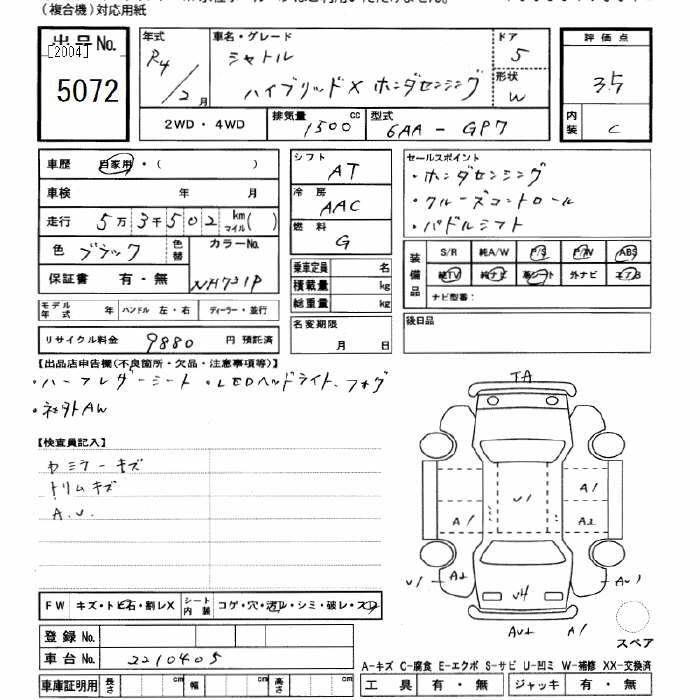 (複合機)対応用紙
出品No.
[2004]
5072
年式
R4/2月
車名・グレード
シャトル
ハイブリッドX ホンダセンシング
ドア
5
形状
W
2WD・4WD
排気量
1500 cc
型式
6AA-GP7
評価点
3.5
内装
C
車歴 自家用・( )
車検 年 月
走行 5万3千502 km マイル( )
色 ブラック 色替
カラーNo.
NH731P
保証書 有・無
モデル年式 年 ハンドル 左・右 ディーラー・並行
リサイクル料金 9880 円 預託済
シフト
AT
冷房
AAC
燃料
G
乗車定員 名
積載量 kg
総重量 kg
名変期限
月 日
セールスポイント
・ホンダセンシング
・クルーズコントロール
・パドルシフト
装備品
S/R 純A/W P/S P/W ABS
純TV 純ナビ 革シート 外ナビ エアB
ナビ型番:
後日品
【出品店申告欄(不良箇所・欠品・注意事項等)】
・ハーフレザーシート ・LEDヘッドライト、フォグ
・社外AW
【検査員記入】
カミラーキズ
トリムキズ
A.U.
TA
U1
A1
A1
A2
U1
A2
U4
AU1
AU2
A1
スペア
FW キズ・トビ石・割レX シート内装 コゲ・穴・汚レ・シミ・破レ・スレ
登録No.
車台No. 2210405
車庫証明用 長さ cm 幅 cm 高さ cm
A-キズ C-腐食 E-エクボ S-サビ U-凹ミ W-補修 XX-交換済
工具 有・無 ジャッキ 有・無